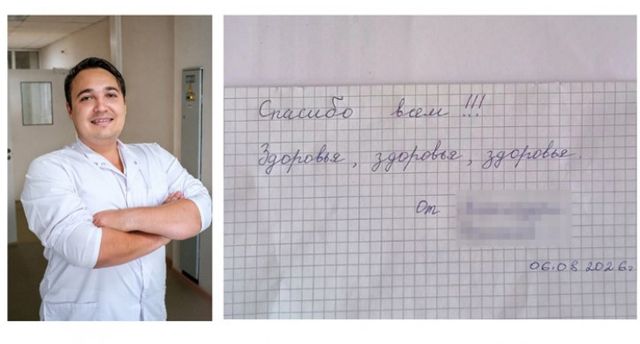 Спасибо всем!!!
Здоровья, здоровья, здоровья.
От
06.08.2026г